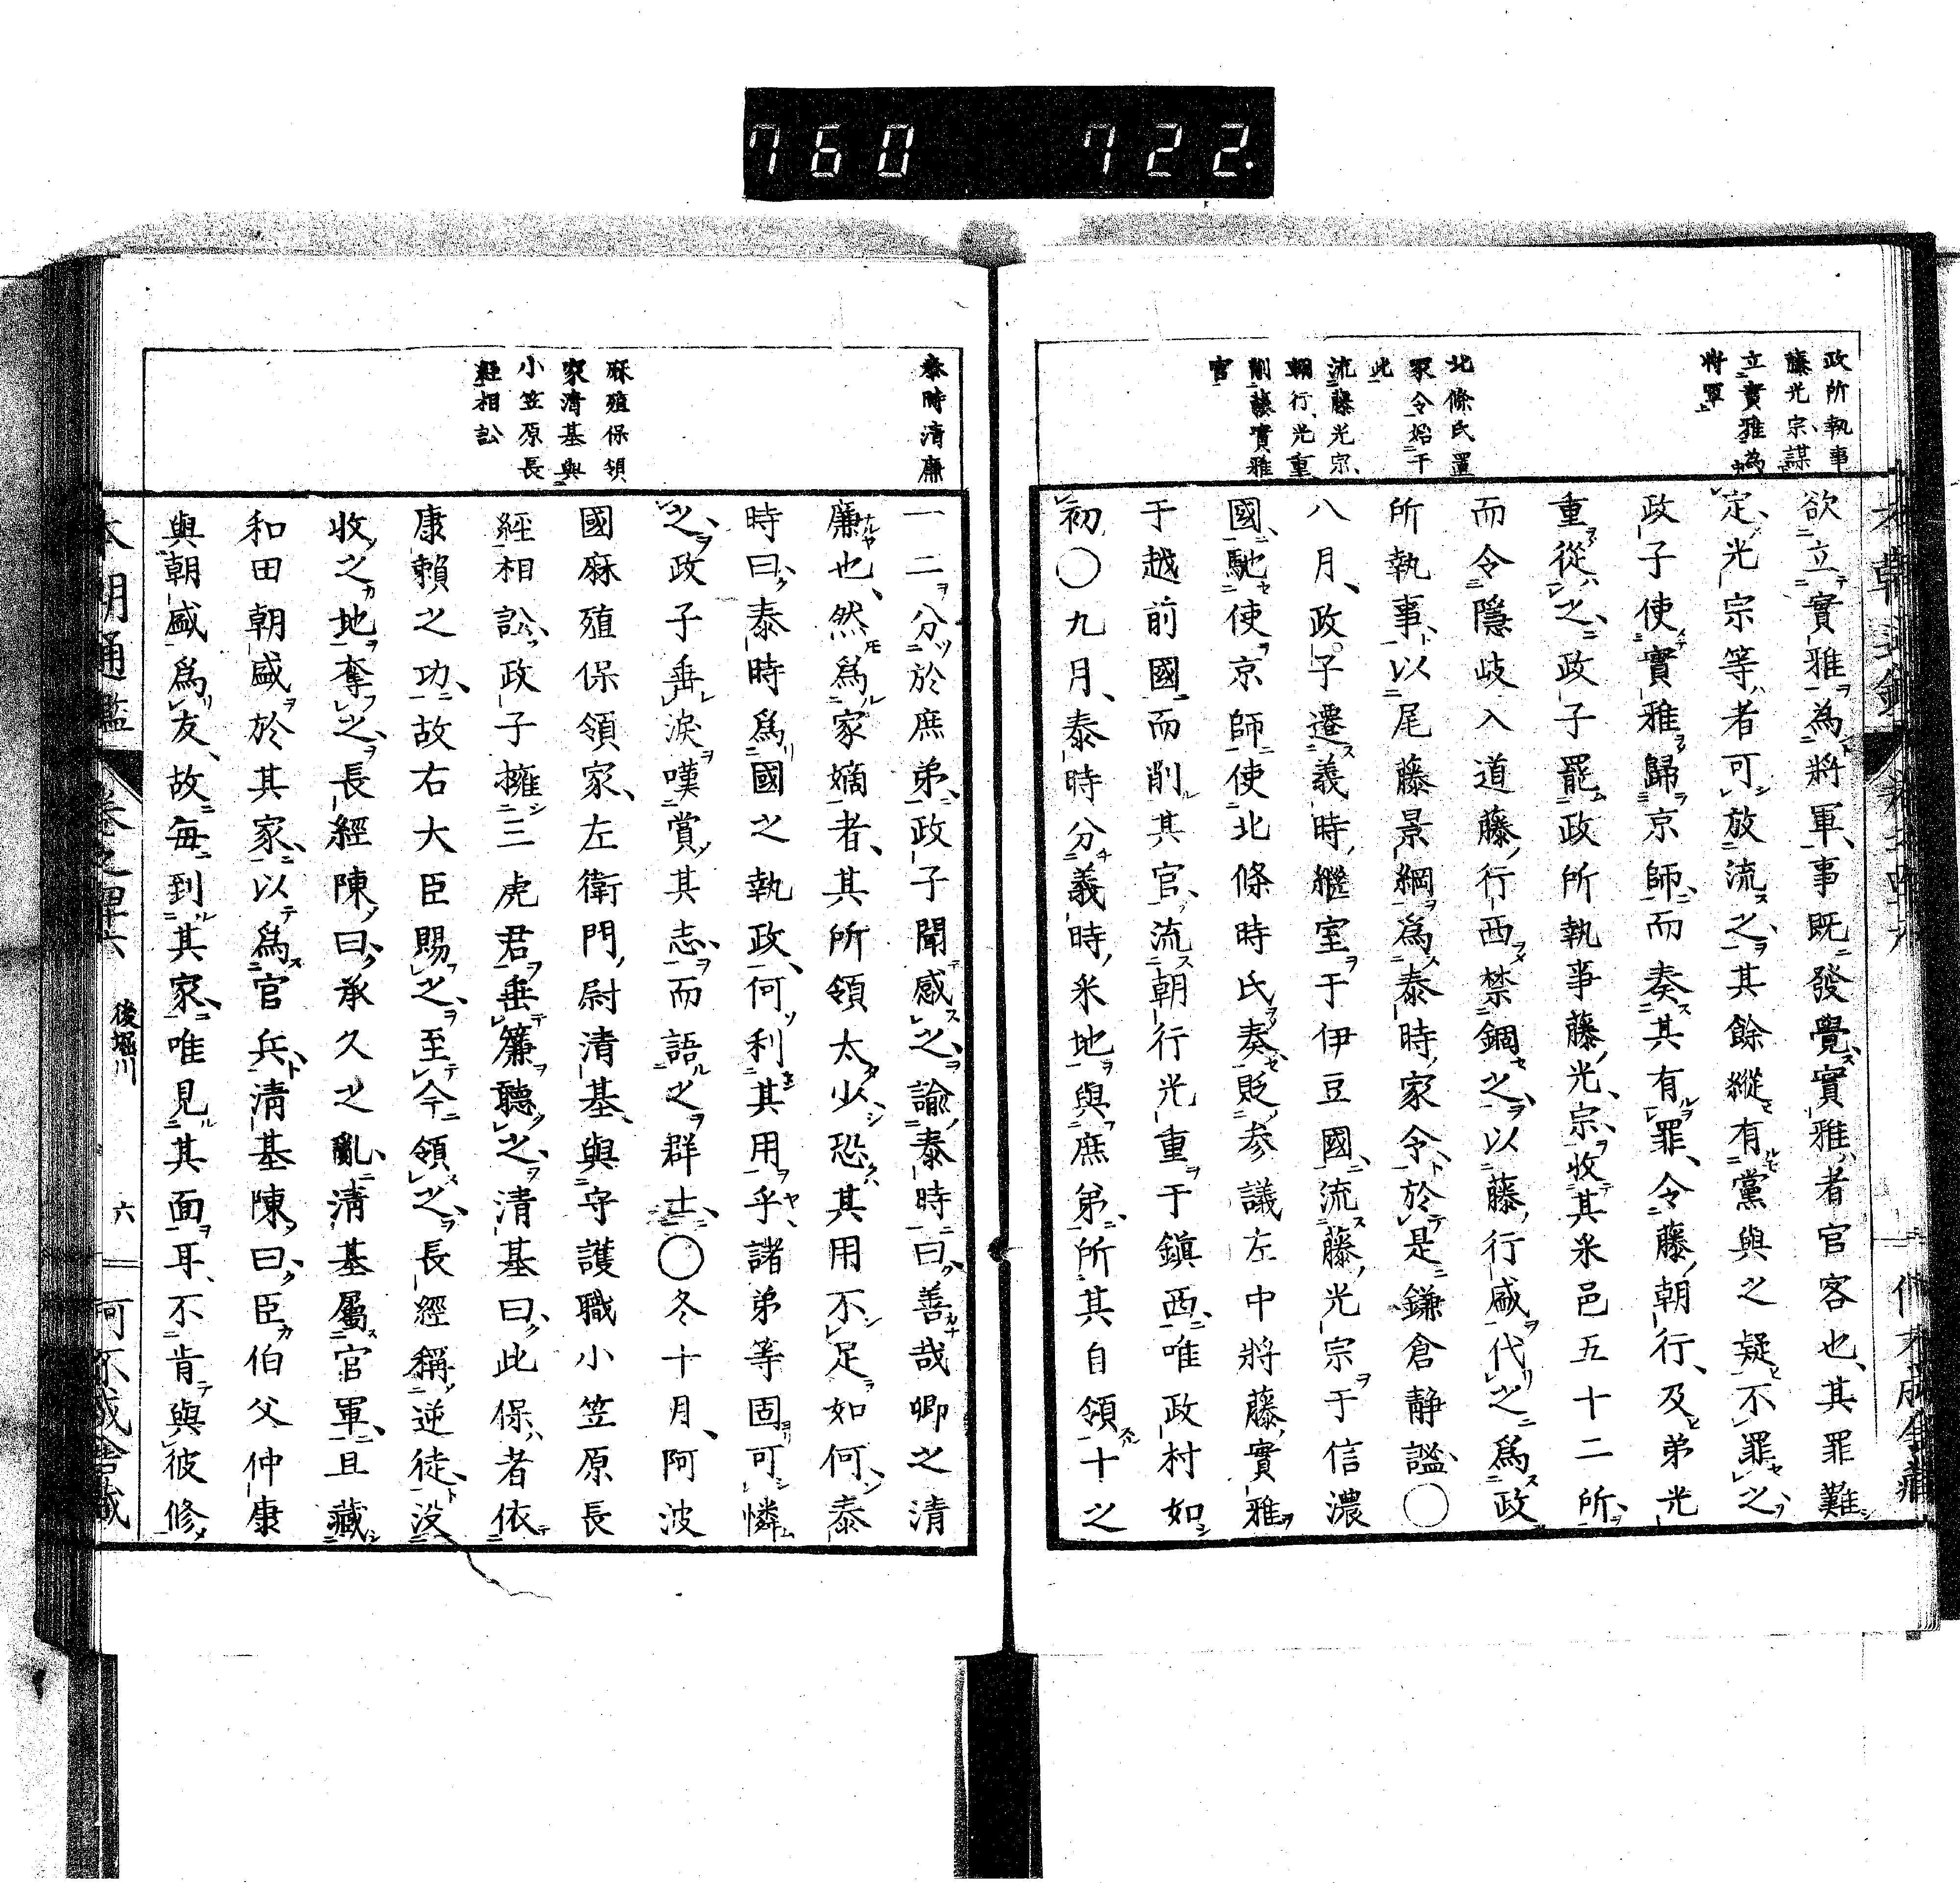 760 722.
政所執事
藤光宗謀
立實雅為
將軍
北條氏置
家令始于
此
流藤光宗、
朝行、光重
削藤實雅
官
欲立實雅為將軍、事既發覺、實雅者官客也、其罪難
定、光宗等者可放流之、其餘縱有黨與之疑不罪之、
政子使實雅歸京師、而奏其有罪、令藤朝行、及弟光
重從之、政子罷政所執事藤光宗、收其釆邑五十二所、
而令隱岐入道藤行西禁錮之、以藤行盛代之為政
所執事、以尾藤景綱為泰時家令、於是鎌倉靜謐、〇
八月、政子遷義時繼室于伊豆國、流藤光宗于信濃
國、馳使京師、使北條時氏奏貶參議左中將藤實雅
于越前國、而削其官、流朝行光重于鎭西、唯政村如
初〇九月、泰時分義時釆地、與庶弟、所其自領十之
泰時清廉
麻殖保領
家清基與
小笠原長
經相訟
一二分於庶弟、政子聞感之、諭泰時曰、善哉卿之清
廉也、然爲家嫡者、其所領太少、恐其用不足如何、泰
時曰、泰時爲國之執政、何利其用乎、諸弟等固可憐
之、政子垂淚嘆賞其志、而語之群士、〇冬十月、阿波
國麻殖保領家、左衛門尉清基、與守護職小笠原長
經相訟、政子擁三虎君垂簾聽之、清基曰、此保者依
康賴之功、故右大臣賜之、至今領之、長經稱逆徒、没
收之地奪之、長經陳曰、承久之亂、清基屬官軍、且藏
和田朝盛於其家、以爲官兵、清基陳曰、臣伯父仲康
與朝盛爲友、故每到其家、唯見其面耳、不肯與彼修
本朝通鑑 卷之
後堀川
六